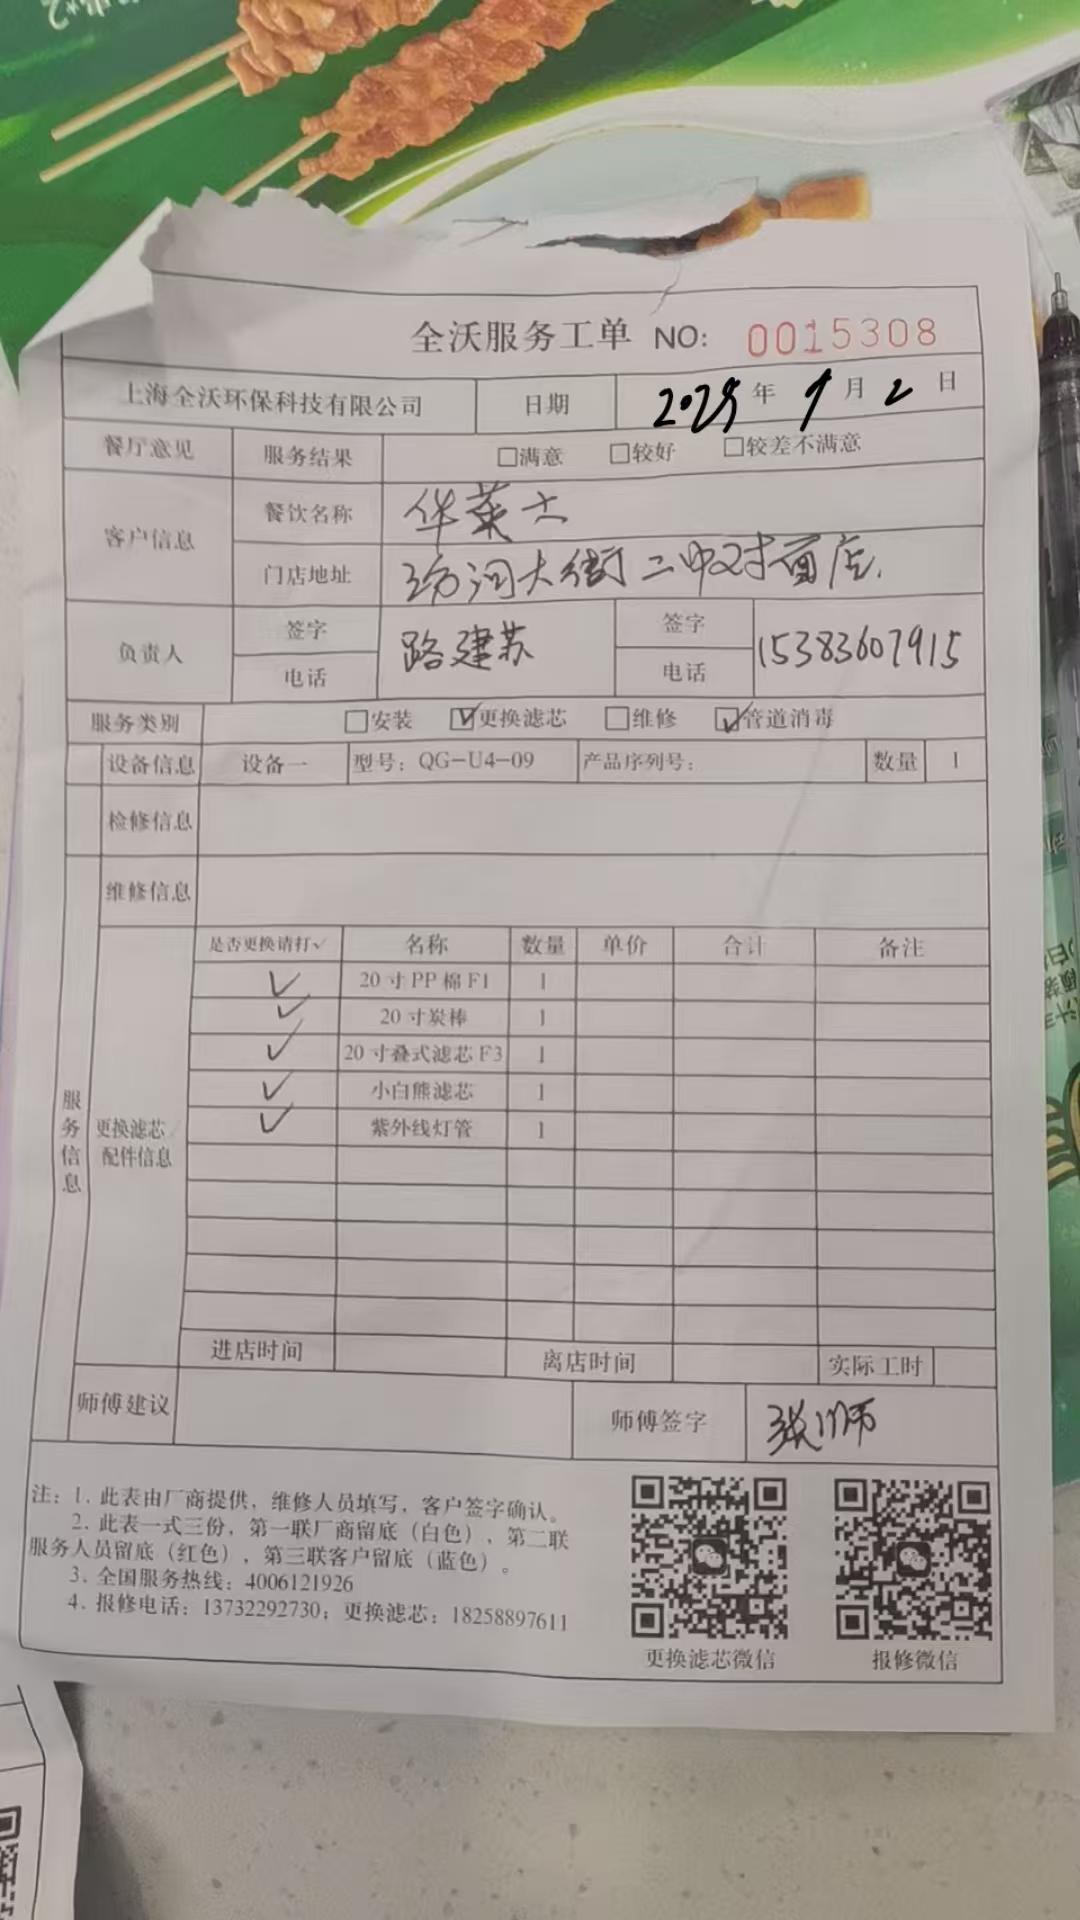 全沃服务工单 NO: 0015308
上海全沃环保科技有限公司 日期 2025年 9月 2日
餐厅意见 服务结果 □满意 □较好 □较差不满意
客户信息 餐饮名称 华莱士
门店地址 大街二中对面店
负责人 签字 路建苏 签字
电话 电话 15383607915
服务类别 □安装 ☑更换滤芯 □维修 ☑管道消毒
设备信息 设备一 型号: QG-U4-09 产品序列号: 数量 1
检修信息
维修信息
是否更换请打✓ 名称 数量 单价 合计 备注
✓ 20寸PP棉F1 1
✓ 20寸炭棒 1
✓ 20寸叠式滤芯F3 1
✓ 小白熊滤芯 1
✓ 紫外线灯管 1
服务信息
更换滤芯/
配件信息
进店时间 离店时间 实际工时
师傅建议 师傅签字 张
注: 1. 此表由厂商提供, 维修人员填写, 客户签字确认。
2. 此表一式三份, 第一联厂商留底 (白色), 第二联
服务人员留底 (红色), 第三联客户留底 (蓝色)。
3. 全国服务热线: 4006121926
4. 报修电话: 13732292730; 更换滤芯: 18258897611
更换滤芯微信 报修微信